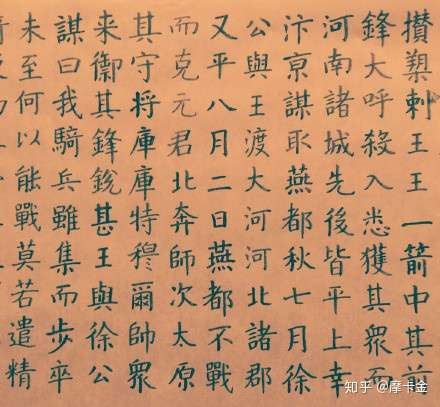 攢槊刺王王一箭中其前
鋒大呼殺入悉獲其眾而
河南諸城先後皆平上幸
汴京謀取燕都秋七月徐
公與王渡大河河北諸郡
又平八月二日燕都不戰
而克元君北奔師次太原
其守将庫庫特穆爾帥眾
来禦其鋒銳甚王與徐公
謀曰我騎兵雖集而步卒
未至何以能戰莫若遣精
知乎 @摩卡金